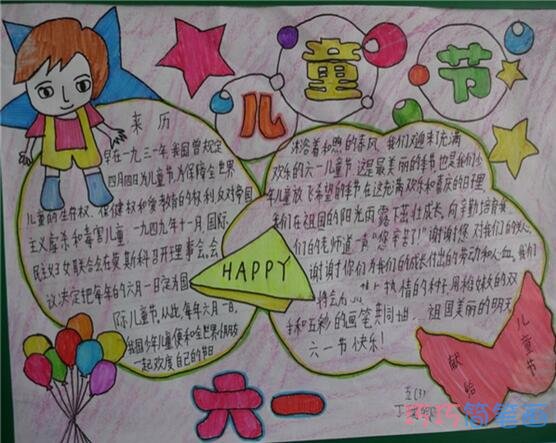 儿童节
来历
早在一九三一年,我国曾规定
四月四日为儿童节,为保障全世界
儿童的生存权、保健权和受教育的权利,反对帝国
主义虐杀和毒害儿童,一九四九年十一月,国际
民主妇女联合会在莫斯科召开理事会,会
议决定把每年的六月一日定为国
际儿童节,从此,每年六月一日,
我国少年儿童便和全世界小朋友
一起欢度自己的节日
沐浴着和煦的春风,我们迎来充满
欢乐的六一儿童节,这是最美丽的季节,也是我们少
年儿童放飞希望的季节,在这充满欢乐和喜庆的日子里
我们在祖国的阳光雨露下茁壮成长,向辛勤培育我
们的老师道一声"您辛苦了!"谢谢您,对我们的
谢谢你们为我们的成长付出的劳动和心血,我们
将会为
手和五彩的画笔共同
祖国美丽的明天
六一节快乐!
HAPPY
六一
献给
儿童节
五(3)
简笔画